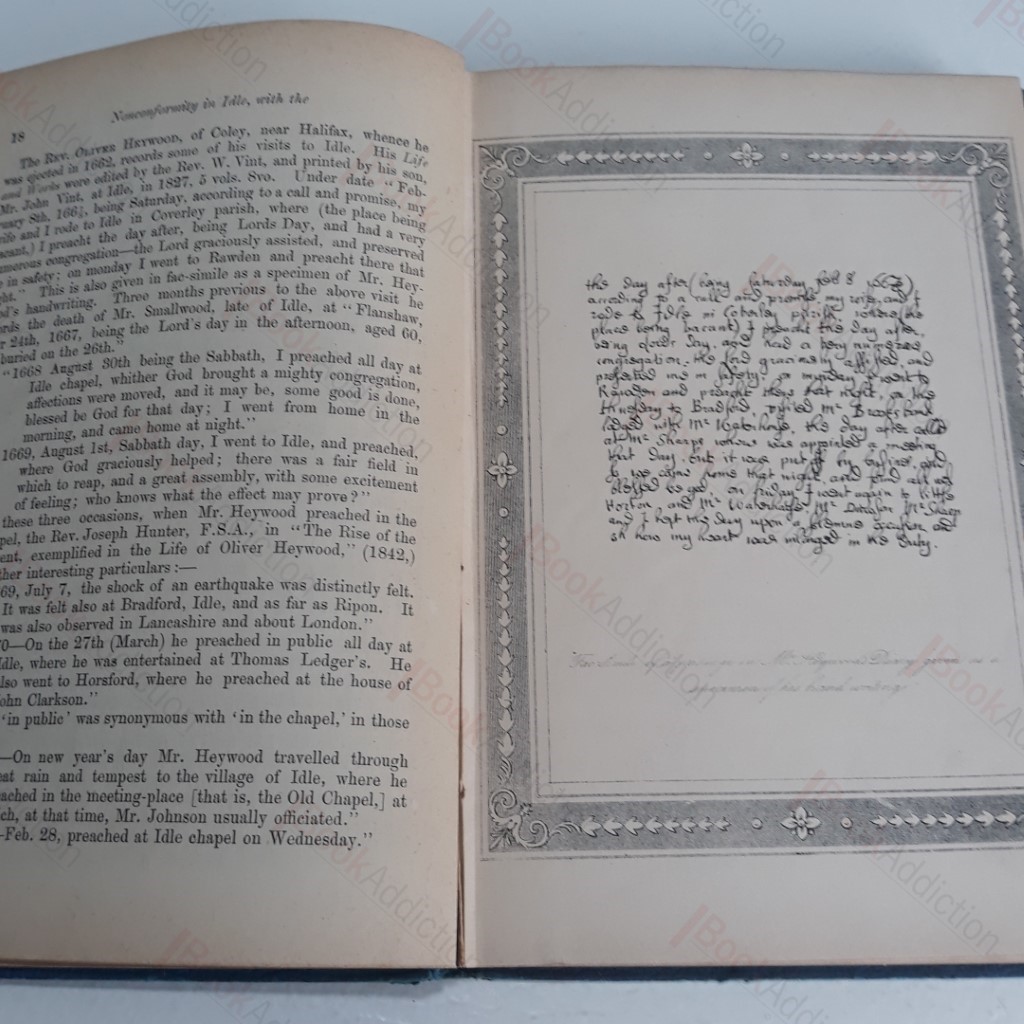 18
Nonconformity in Idle, with the
The REV. OLIVER HEYWOOD, of Coley, near Halifax, whence he
was ejected in 1662, records some of his visits to Idle. His Life
and Works were edited by the Rev. W. Vint, and printed by his son,
Mr. John Vint, at Idle, in 1827, 5 vols. 8vo. Under date "Feb-
ruary 8th, 166⅞, being Saturday, according to a call and promise, my
wife and I rode to Idle in Coverley parish, where (the place being
vacant,) I preacht the day after, being Lords Day, and had a very
numerous congregation—the Lord graciously assisted, and preserved
in safety; on monday I went to Rawden and preacht there that
ht." This is also given in fac-simile as a specimen of Mr. Hey-
d's handwriting. Three months previous to the above visit he
rds the death of Mr. Smallwood, late of Idle, at "Flanshaw,
r 24th, 1667, being the Lord's day in the afternoon, aged 60,
buried on the 26th."
"1668 August 30th being the Sabbath, I preached all day at
Idle chapel, whither God brought a mighty congregation,
affections were moved, and it may be, some good is done,
blessed be God for that day; I went from home in the
morning, and came home at night."
1669, August 1st, Sabbath day, I went to Idle, and preached,
where God graciously helped; there was a fair field in
which to reap, and a great assembly, with some excitement
of feeling; who knows what the effect may prove?"
these three occasions, when Mr. Heywood preached in the
pel, the Rev. Joseph Hunter, F.S.A., in "The Rise of the
ent, exemplified in the Life of Oliver Heywood," (1842,)
ther interesting particulars:—
69, July 7, the shock of an earthquake was distinctly felt.
It was felt also at Bradford, Idle, and as far as Ripon. It
was also observed in Lancashire and about London."
0—On the 27th (March) he preached in public all day at
Idle, where he was entertained at Thomas Ledger's. He
also went to Horsford, where he preached at the house of
John Clarkson."
'in public' was synonymous with 'in the chapel,' in those
—On new year's day Mr. Heywood travelled through
eat rain and tempest to the village of Idle, where he
ached in the meeting-place [that is, the Old Chapel,] at
ch, at that time, Mr. Johnson usually officiated."
-Feb. 28, preached at Idle chapel on Wednesday."
the day after (being Saturday feb 8
according to a call and promise, my wife, and I
rode to Idle in Coverley parish, where (the
place being vacant) I preacht the day after,
being Lords day, and had a very numerous
congregation. the lord graciously assisted, and
me in safety. on munday I went to
Rawden and preacht there that night, on the
to Bradford, visited Mr Brooksbank
lodged with Mr Waterhouse, the day after
at Mr Sharps where was appointed a meeting
that day, but it was put off
we came home that night, and found all wel
blessed be god. on friday I went again to little
Horton, and Mr Waterhouse Mr Mr Sharp
and I kept the day upon a solemne occasion and
oh how my heart was inlarged in the duty.
Mr. Heywood's Diary given as a
specimen of his hand writing
BookAddiction